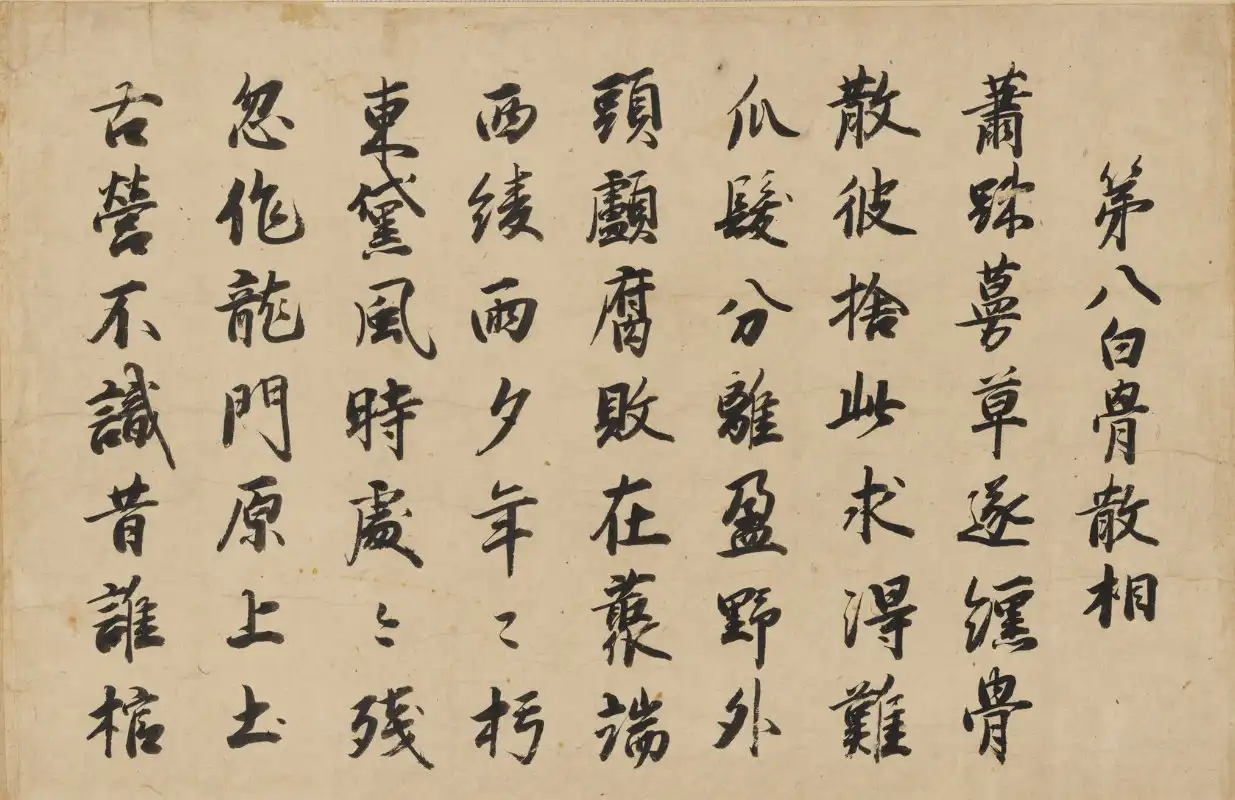 第八白骨散相
蕭踈蔓草遂纏骨
散彼捨此求得難
爪髮分離盈野外
頭顱腐敗在藂端
西綾雨夕年〻朽
東黛風時處〻残
忽作龍門原上土
古營不識昔誰棺